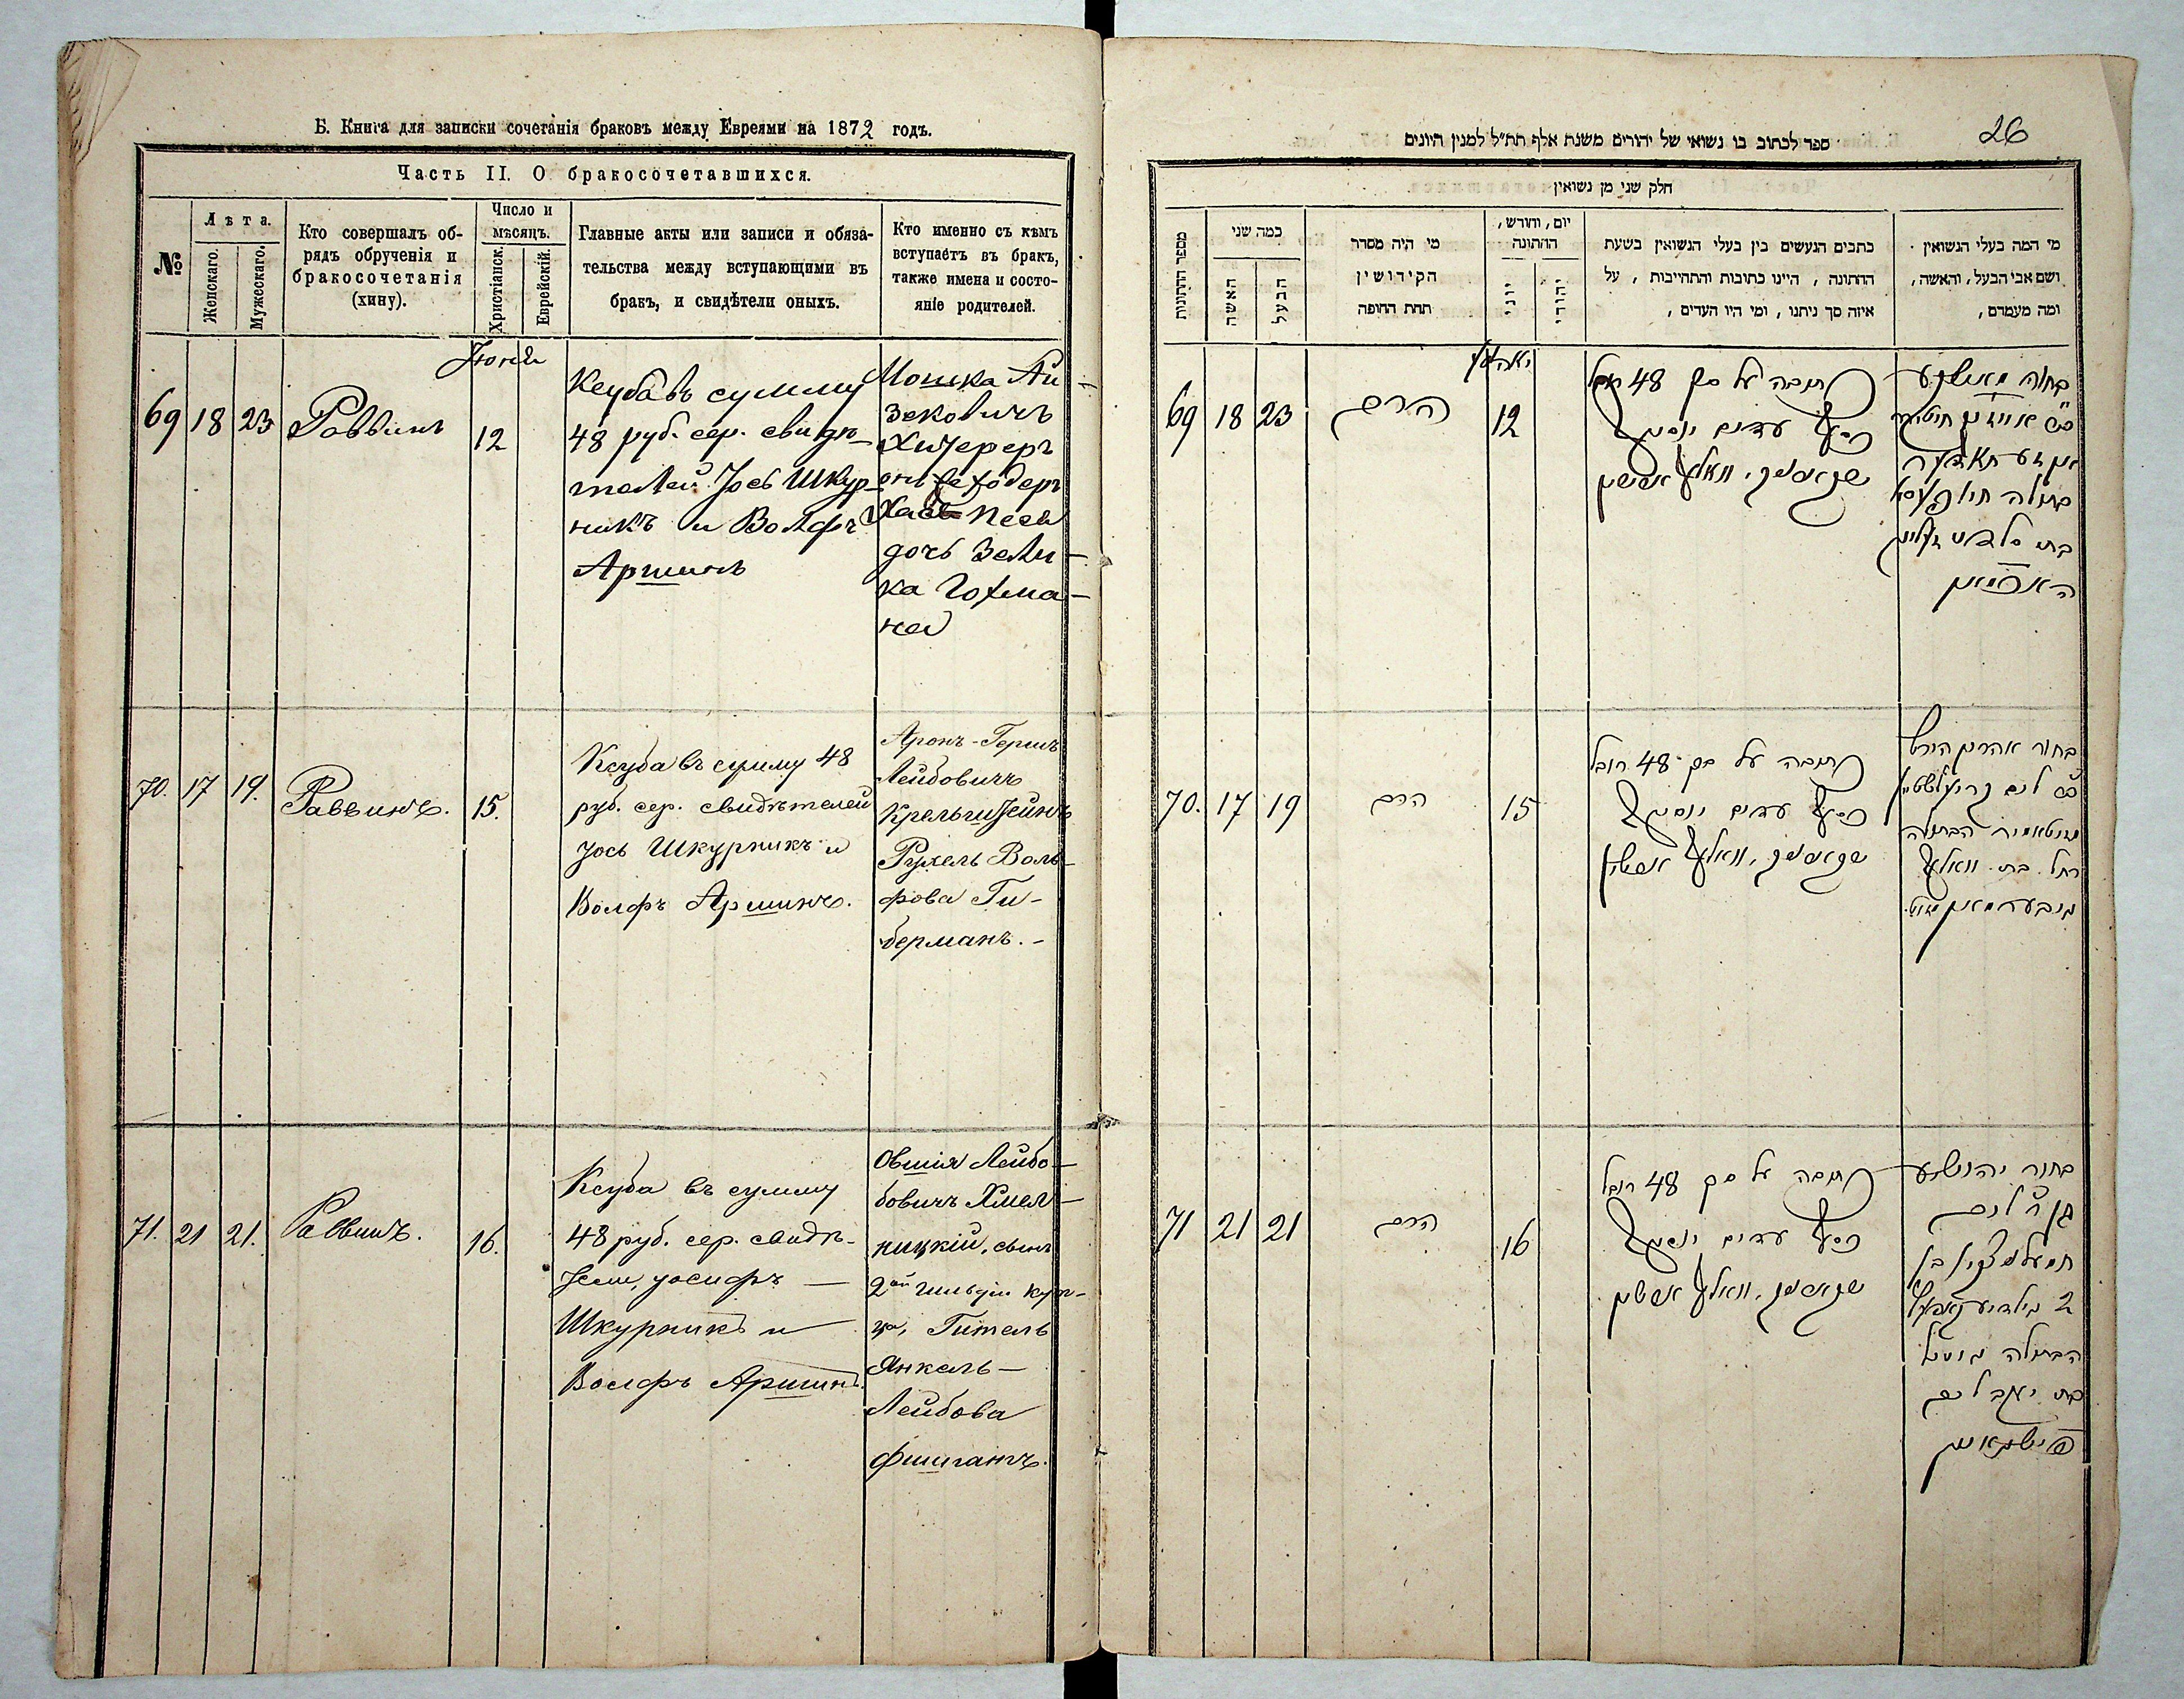 Б. Книга для записки сочетанія браковъ между Евреями на 1872 годъ.
Часть II. О бракосочетавшихся.
№
Лѣта.
Женскаго.
Мужескаго.
Кто совершалъ об-
рядъ обрученія и
бракосочетанія
(хину).
Число и
мѣсяцъ.
Христіанск.
Еврейскій.
Главные акты или записи и обяза-
тельства между вступающими въ
бракъ, и свидѣтели оныхъ.
Кто именно съ кѣмъ
вступаетъ въ бракъ,
также имена и состо-
яніе родителей.
Іюня
69 18 23 Раввинъ 12
Ксуба въ сумму
48 руб. сер. свидѣ-
телей Іось Шкур-
никъ и Волфъ
Аршинъ
Мошка Ай-
зековичъ
дочь Зели-
ка Гохма-
на
70. 17 19. Раввинъ. 15.
Ксуба въ сумму 48
руб. сер. свидѣтелей
Іось Шкурникъ и
Волфъ Аршинъ.
Аронъ-Гершъ
Лейбовичъ
Крельштейнъ
Рухель Воль-
фова Ги-
берманъ.-
71. 21 21. Раввинъ. 16.
Ксуба въ сумму
48 руб. сер. свидѣ-
Іосифъ —
Шкурникъ и
Волфъ Аршинъ.
Овшія Лейбо-
бовичъ Хмел-
ницкій, сынъ
2ой гильдіи куп-
ца, Гитель
Янкель-
Лейбова
Фишманъ.
26
ספר לכתוב בו נשואי של יהודים משנת אלף תת״ל למנין היונים
חלק שני מן נשואין
מספר החתונות
כמה שני
האשה
הבעל
מי היה מסדר
הקידושין
תחת החופה
יום, וחודש,
החתונה
יוני
יהודי
כתבים הנעשים בין בעלי הנשואין בשעת
החתונה, היינו כתובות והתחייבות, על
איזה סך ניתנו, ומי היו העדים,
מי המה בעלי הנשואין
ושם אבי הבעל, והאשה,
ומה מעמדם,
69 18 23 הרב 12
כתובה על סך 48 רובל
כסף עדים יוסף
שקורניק, וואלף ארשין
בחור
בתולה
בת
האכמאן
70. 17 19 הרב 15
כתובה על סך 48 רובל
כסף עדים יוסף
שקורניק, וואלף ארשין
בחור אהרן הירש
הבתולה
רחל בת וואלף
71 21 21 הרב 16
כתובה על סך 48 רובל
כסף עדים יוסף
שקורניק, וואלף ארשין
בחור יהושע
בן ר' ליב
הבתולה גיטל
בת יעקב ליב
פישמאן